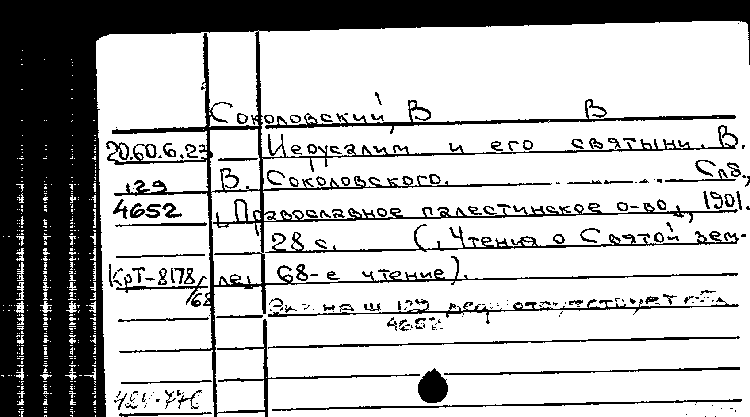 Соколовский, В В
20.60.6.23 Иерусалим и его святыни. В.
129 В. Соколовского. Спб.,
4652 [Православное палестинское о-во], 1901.
28 с. (Чтения о Святой зем-
КрТ-8178/68 ле, 68-е чтение).
Экз на ш 129 отсутствует
4652